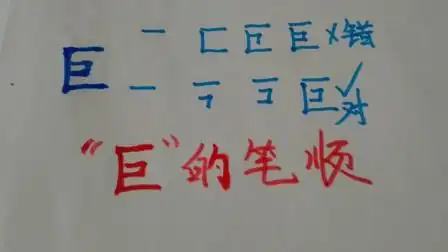 巨 一 匚 巨 巨 ×错
一 コ コ 巨 ✓对
“巨”的笔顺